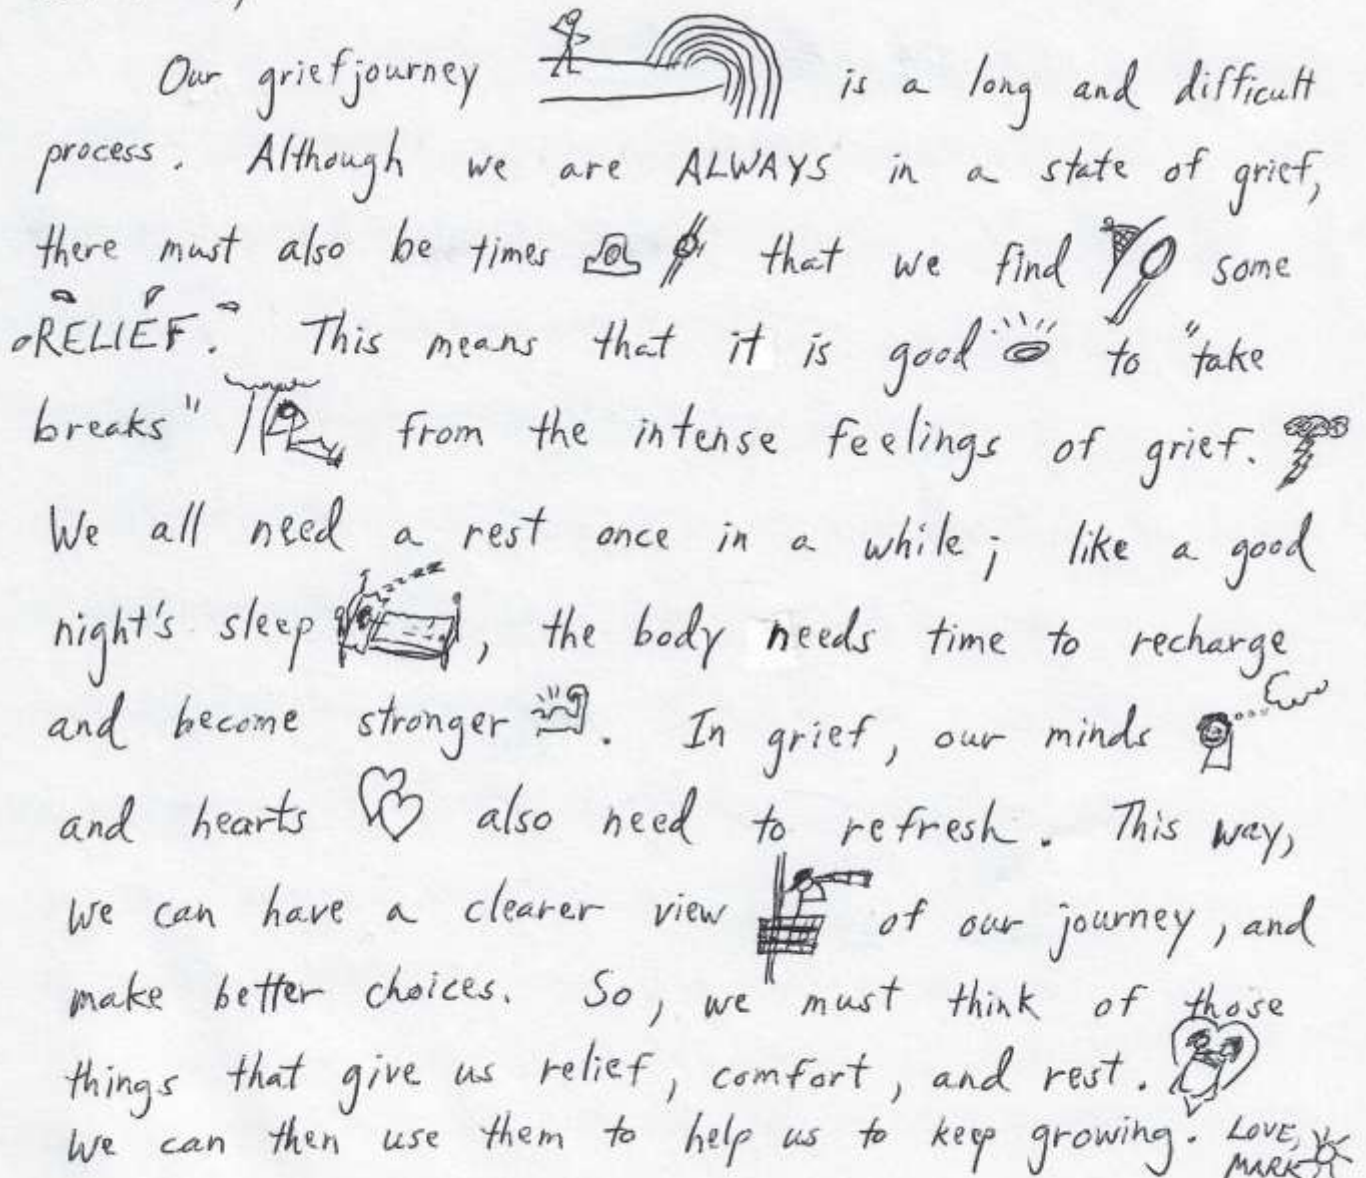 Our grief journey is a long and difficult
process. Although we are ALWAYS in a state of grief,
there must also be times that we find some
RELIEF. This means that it is good to "take
breaks" from the intense feelings of grief.
We all need a rest once in a while; like a good
night's sleep zzzz, the body needs time to recharge
and become stronger. In grief, our minds
and hearts also need to refresh. This way,
we can have a clearer view of our journey, and
make better choices. So, we must think of those
things that give us relief, comfort, and rest.
We can then use them to help us to keep growing. LOVE,
MARK